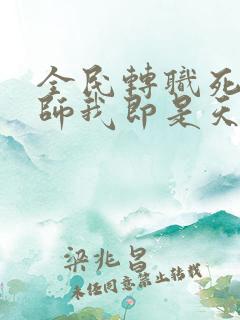 全民轉職死
師我即是天
梁兆昌
未经同意禁止转载